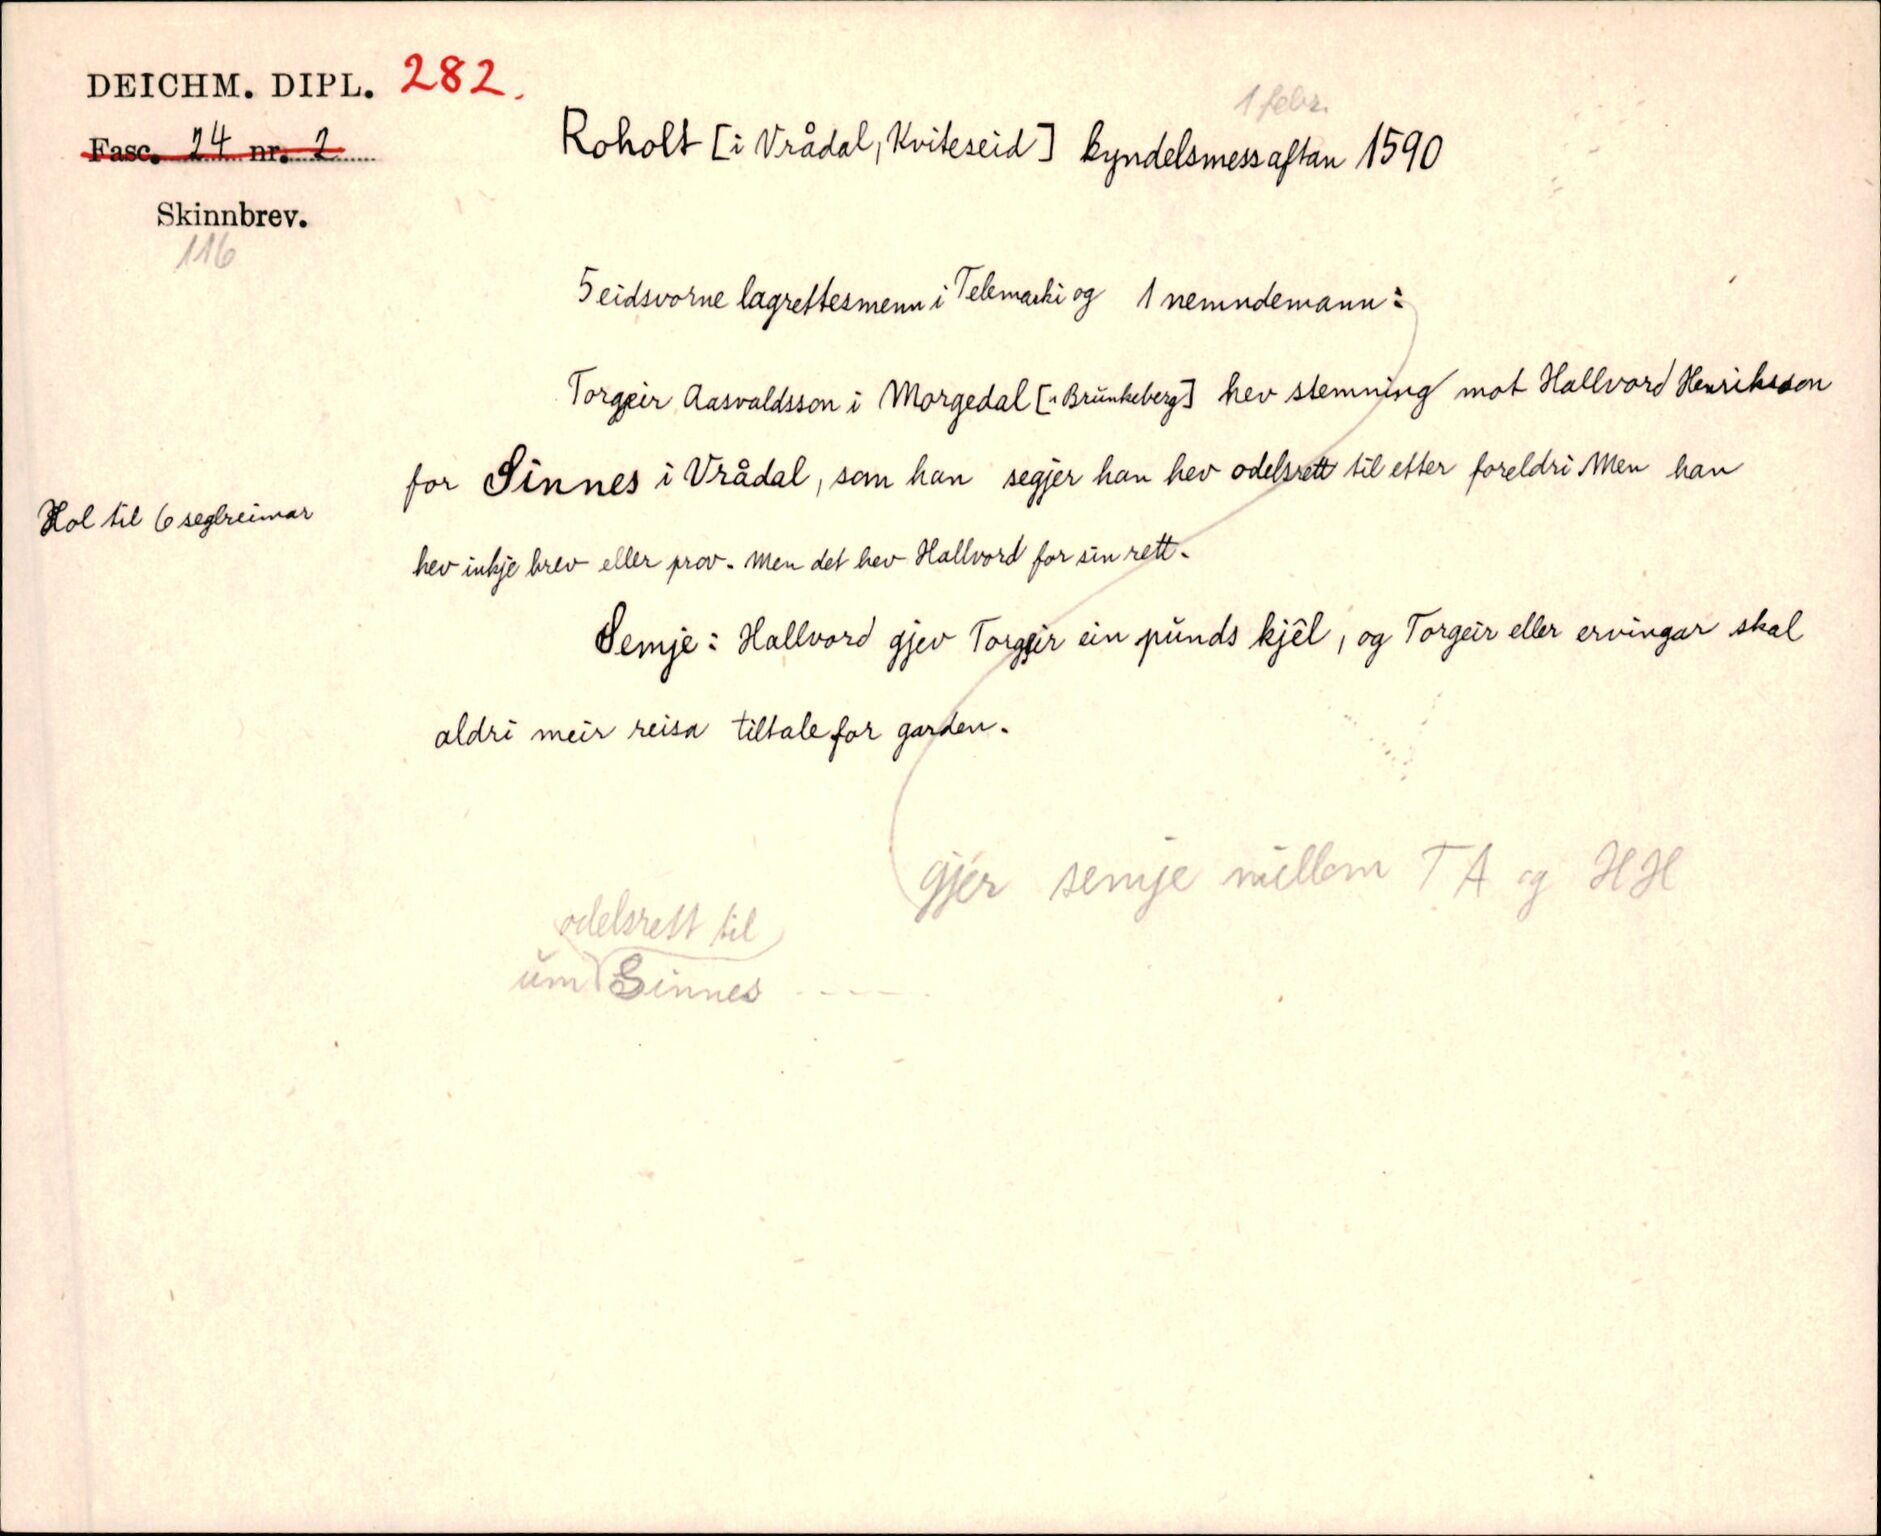 DEICHM. DIPL. 282.
Fasc. 24 nr. 2
Skinnbrev.
116
1 febr.
Roholt [i Vrådal, Kviteseid] kyndelsmessaftan 1590
5 eidsvorne lagrettesmenn i Telemarki og 1 nemndemann:
Torgeir Aasvaldsson i Morgedal [i Brunkeberg] hev stemning mot Hallvord Henriksson
for Sinnes i Vrådal, som han segjer han hev odelsrett til etter foreldri Men han
Hol til 6 seglreimar
hev inkje brev eller prov. Men det hev Hallvord for sin rett.
Semje: Hallvord gjev Torgeir ein punds kjel, og Torgeir eller ervingar skal
aldri meir reisa tiltale for garden.
gjer semje millom T A og H H
odelsrett til
um Sinnes - - - - -